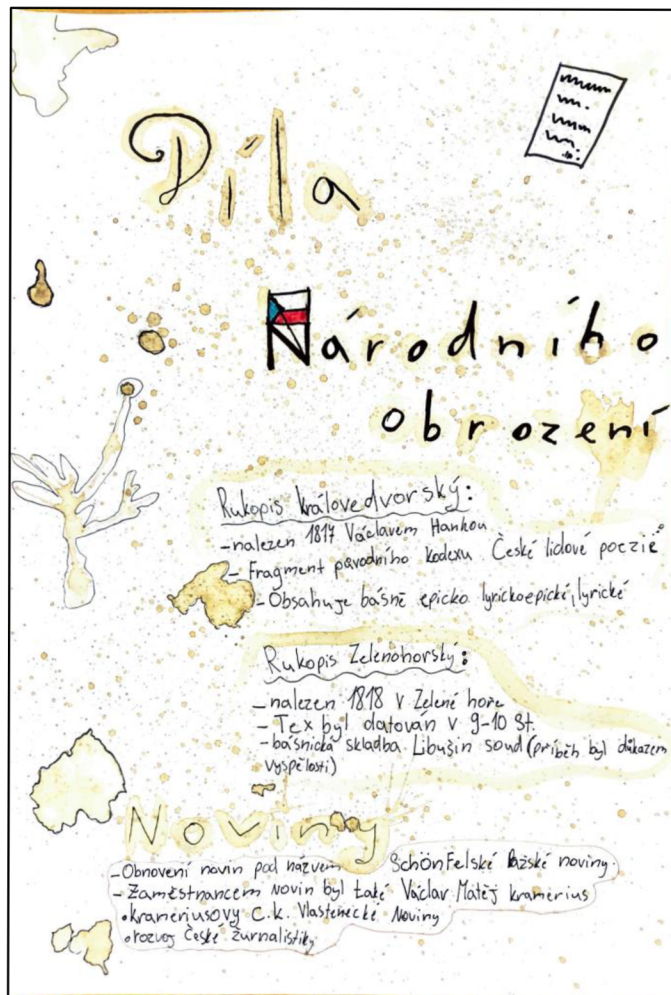 Díla
Národního
obrození
Rukopis Královedvorský:
-nalezen 1817 Václavem Hankou
- Fragment původního kodexu České lidové poezie
- Obsahuje básně epicko lyrickoepické, lyrické
Rukopis Zelenohorský:
- nalezen 1818 v Zelené hoře
- Tex byl datován v 9-10 St.
- básnická skladba Libušin soud (příběh byl důkazem
vyspělosti)
Noviny
- Obnovení novin pod názvem Schönfelské Pažské noviny.
- Zaměstnancem novin byl také Václav Matěj kramerius
• krameriusovy C.k. Vlastenecké Noviny
• rozvoj České žurnalistiky